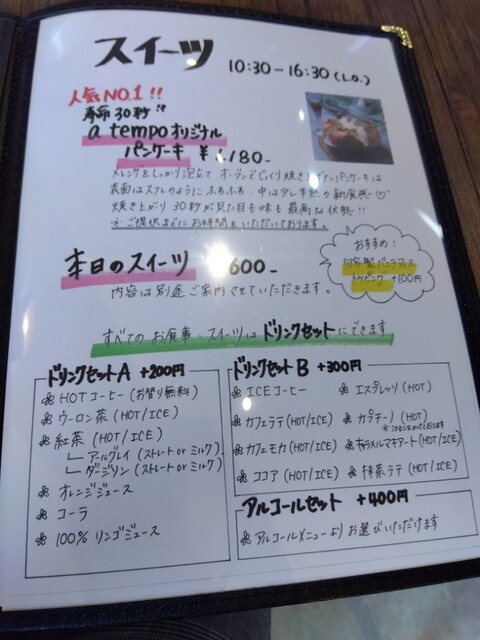 スイーツ 10:30-16:30(L.O.)
人気NO.1!!
寿命30秒!?
a tempoオリジナル
パンケーキ ¥1,180-
メレンゲをしっかり泡立て オーブンでじっくり焼き上げたパンケーキは
表面はスフレのようにふわふわ、中は少し半熟の新食感♡
焼き上がり 30秒が見た目も味も 最高な状態!!
※ご提供までにお時間をいただいております。
本日のスイーツ 600-
内容は別途ご案内させていただきます。
おすすめ!
自家製バニラアイス
トッピング +100円
すべてのお食事、スイーツはドリンクセットにできます
ドリンクセットA +200円
HOTコーヒー(お替り無料)
ウーロン茶(HOT/ICE)
紅茶(HOT/ICE)
アールグレイ(ストレート or ミルク)
ダージリン(ストレート or ミルク)
オレンジジュース
コーラ
100% リンゴジュース
ドリンクセットB +300円
ICEコーヒー エスプレッソ(HOT)
カフェラテ(HOT/ICE) カプチーノ(HOT)
カフェモカ(HOT/ICE) キャラメルマキアート(HOT/ICE)
ココア(HOT/ICE) 抹茶ラテ(HOT/ICE)
アルコールセット +400円
アルコールメニューより お選びいただけます